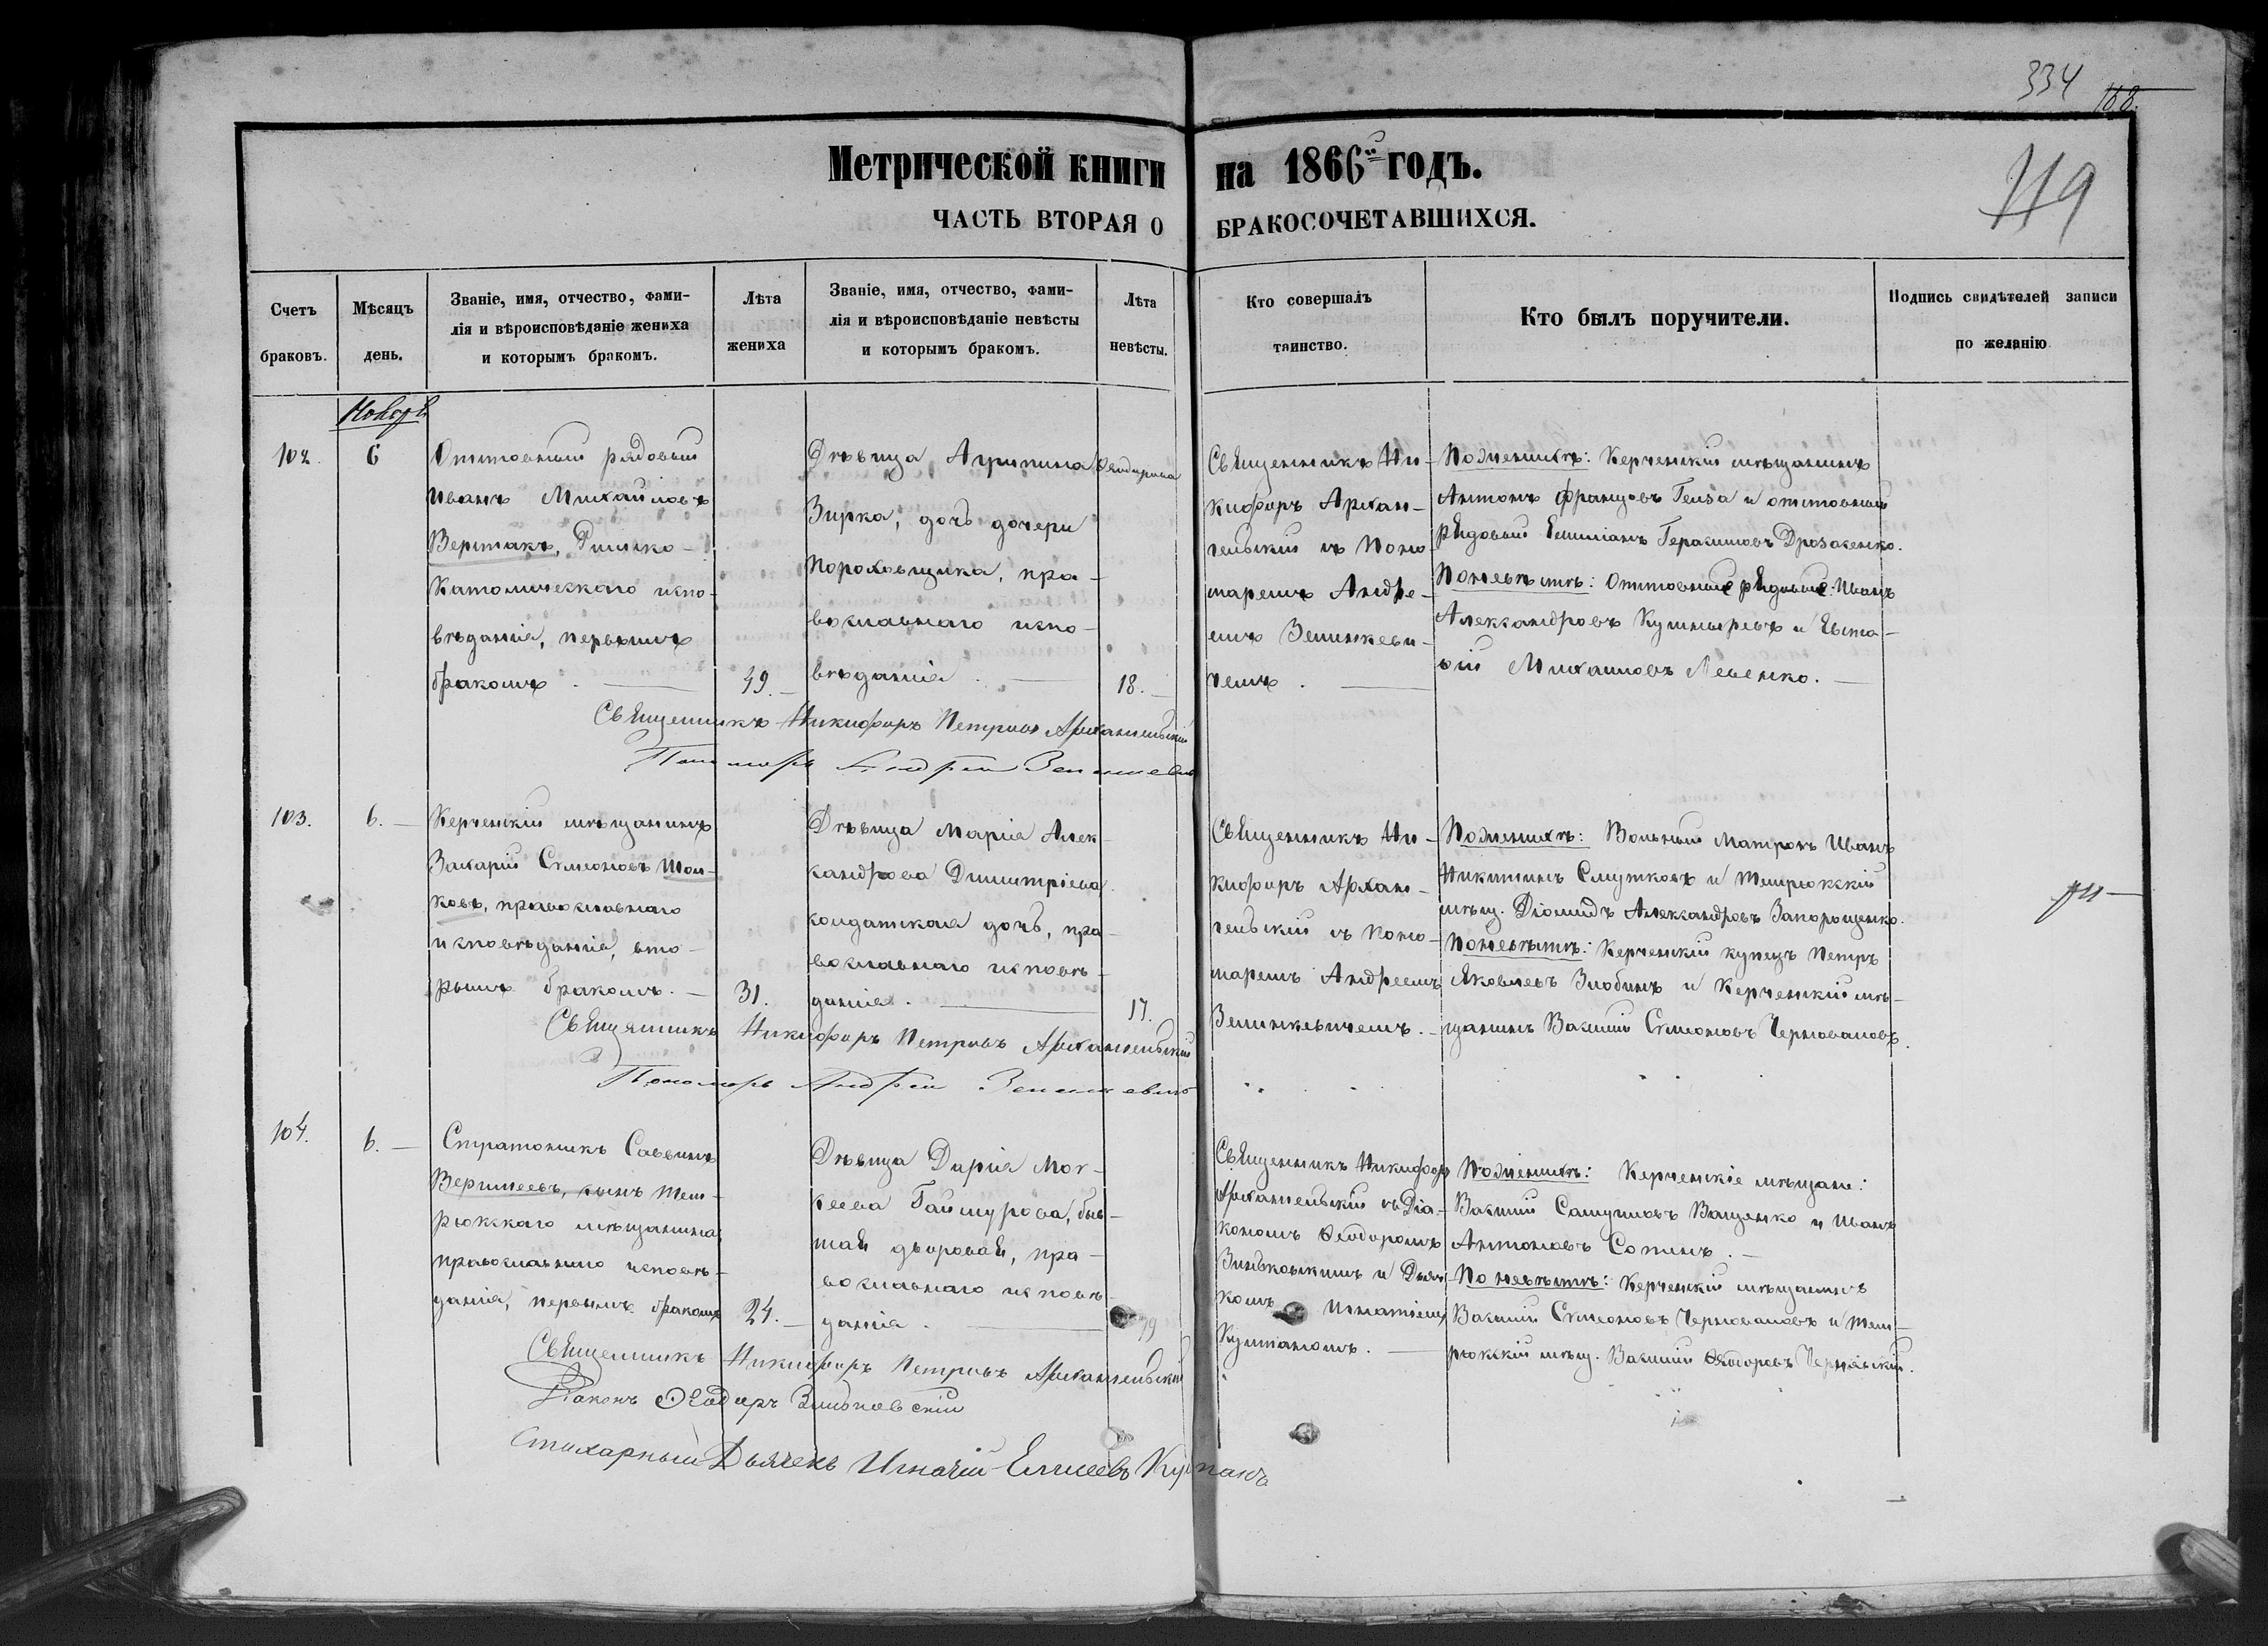 334 168.
Метрической книги на 1866й годъ.
119
ЧАСТЬ ВТОРАЯ О БРАКОСОЧЕТАВШИХСЯ.
Счетъ браковъ.
Мѣсяцъ день.
Званіе, имя, отчество, фами-
лія и вѣроисповѣданіе жениха
и которымъ бракомъ.
Лѣта жениха
Званіе, имя, отчество, фами-
лія и вѣроисповѣданіе невѣсты
и которымъ бракомъ.
Лѣта невѣсты.
Кто совершалъ таинство.
Кто былъ поручители.
Подпись свидѣтелей записи
по желанію
Ноябрь
102.
6
Отставный рядовый
Иванъ Михайловъ
Вертакъ, Римско-
Католическаго испо-
вѣданія, первымъ
бракомъ.
49.
Дѣвица Агрипина Ѳеодорова
Зирка, дочь дочери
Пороховщика, пра-
вославнаго испо-
вѣданія.
18.
Священникъ Ни-
кифоръ Архан-
гельскій съ Поно
маремъ Андре-
емъ Зелинкеви-
чемъ.
По женихѣ: Керченскій мѣщанинъ
Антонъ Францовъ и отставный
рядовый Емиліанъ Герасимовъ
По невѣстѣ: Отставные рядовые: Иванъ
Александровъ Кушныревъ и Евста-
фій Михаиловъ
Священникъ Никифоръ Петровъ Архангельскій
Пономарь Андрей
103.
6.
Керченскій мѣщанинъ
Захарій Симеоновъ Шол-
ковъ, православнаго
исповѣданія, вто-
рымъ бракомъ.
31.
Дѣвица Марія Алек-
сандрова Димитріева,
солдатская дочь, пра-
вославнаго исповѣ-
данія.
17.
Священникъ Ни-
кифоръ Архан-
гельскій съ Поно-
маремъ Андреемъ
Зелинкевичемъ.
По женихѣ: Вольный Матросъ Иванъ
Никитинъ Смутковъ и Темрюкскій
мѣщ. Діомидъ Александровъ Запорощенко.
По невѣстѣ: Керченскій купецъ Петръ
Яковлевъ Злобинъ и Керченскій мѣ-
щанинъ Василій Симеоновъ Черноваловъ.
Священникъ Никифоръ Петровъ Архангельскій
Пономарь Андрей
104.
6.
Стратоникъ Саввинъ
Веримеевъ, сынъ Тем-
рюкскаго мѣщанина
православнаго исповѣ-
данія, первымъ бракомъ
24.
Дѣвица Дарія Мос-
Гаймурова, быв-
шая дворовая, пра-
вославнаго исповѣ-
данія.
19
Священникъ Никифор
Архангельскій съ Діа-
кономъ Ѳеодоромъ
Зиньковскимъ и Дьяч-
комъ Игнатіемъ
По женихѣ: Керченскіе мѣщане:
Василій Самуиловъ Ващенко и Иванъ
Антоновъ Сопинъ.
По невѣстѣ: Керченскій мѣщанинъ
Василій Симеоновъ Черноваловъ и Тем-
рюкскій мѣщ. Василій Ѳеодоровъ Чернявскій.
Священникъ Никифоръ Петровъ Архангельскій
Діаконъ Ѳеодоръ Зиньковскій
Стихарный Дьячекъ Игнатій Елисеевъ